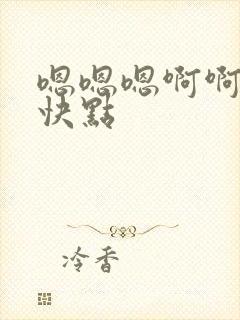 嗯嗯嗯啊啊
快點
冷香